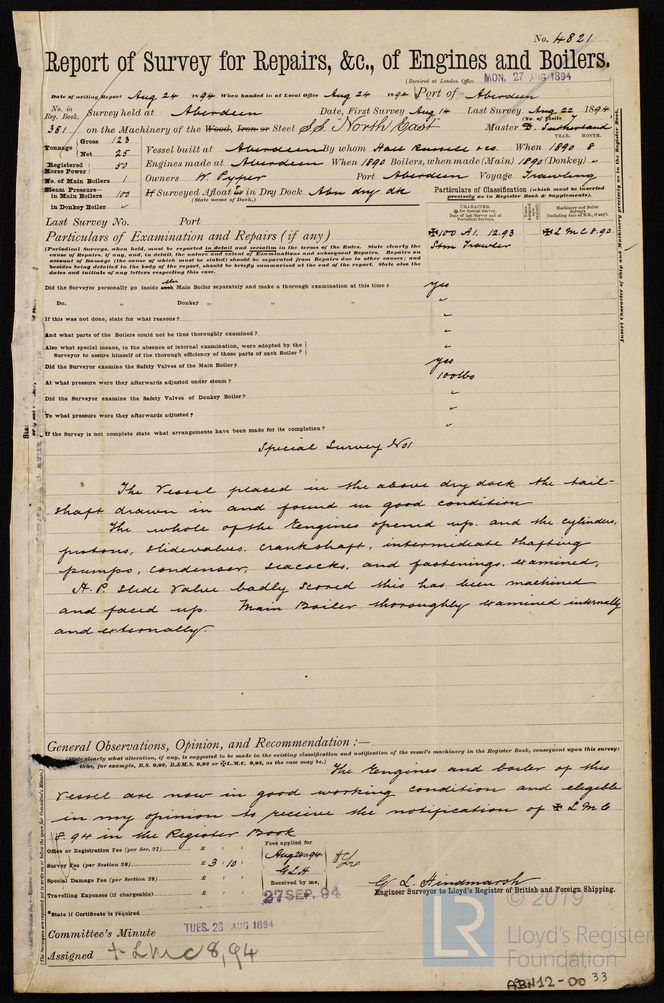 No. 4821
Report of Survey for Repairs, &c., of Engines and Boilers.
(Received at London Office MON. 27 AUG 1894
Date of writing Report Aug 24 1894 When handed in at Local Office Aug 24 1894 Port of Aberdeen
No. in Reg. Book. Survey held at Aberdeen Date, First Survey Aug 14 Last Survey Aug 22 1894
(No. of Visits
381 on the Machinery of the Wood, Iron or Steel S.S. North East Master D. Sutherland
YEAR. MONTH.
Tonnage Gross 123 Net 25 Vessel built at Aberdeen By whom Hall Russell & Co. When 1890 8
Registered Horse Power 50 Engines made at Aberdeen When 1890 Boilers, when made (Main) 1890 (Donkey) "
No. of Main Boilers 1 Owners W. Pyper Port Aberdeen Voyage Trawling
Steam Pressure in Main Boilers 100 If Surveyed Afloat or in Dry Dock Abn dry dk
(State name of Dock.)
in Donkey Boiler "
Particulars of Classification (which must be inserted precisely as in Register Book & Supplements).
Last Survey No. Port
CHARACTER.
Machinery and Boiler Surveys
✠100 A1. 12.93 ✠L M C 8.90
Stm Trawler
Particulars of Examination and Repairs (if any)
(Periodical Surveys, when held, must be reported in detail and seriatim in the terms of the Rules. State clearly the
cause of Repairs, if any, and, in detail, the nature and extent of Examinations and subsequent Repairs. Repairs on
account of Damage (the cause of which must be stated) should be separated from Repairs due to other causes; and
besides being detailed in the body of the report, should be briefly summarised at the end of the report. State also the
dates and initials of any letters respecting this case.
Insert Character of Ship and Machinery precisely as in the Register Book.
Did the Surveyor personally go inside each the Main Boiler separately and make a thorough examination at this time? yes
Do. " Donkey " " " "
If this was not done, state for what reasons? "
And what parts of the Boilers could not be thoroughly examined? "
Also what special means, in the absence of internal examination, were adopted by the
Surveyor to assure himself of the thorough efficiency of those parts of each Boiler? "
Did the Surveyor examine the Safety Valves of the Main Boiler? yes
At what pressure were they afterwards adjusted under steam? 100 lbs
Did the Surveyor examine the Safety Valves of Donkey Boiler? "
To what pressure were they afterwards adjusted? "
If the Survey is not complete state what arrangements have been made for its completion? "
Special Survey No 1
The Vessel placed in the above dry dock the tail-
shaft drawn in and found in good condition
The whole of the Engines opened up. and the cylinders,
pistons, slidevalves, crankshaft, intermediate shafting
pumps, condenser, seacocks, and fastenings, examined,
H. P. Slide Valve badly scored this has been machined
and faced up. Main Boiler thoroughly examined internally
and externally.
General Observations, Opinion, and Recommendation:—
(State clearly what alteration, if any, is suggested to be made in the existing classification and notification of the vessel's machinery in the Register Book, consequent upon this survey:
thus, for example, B.S. 9,93 B.&M.S. 9,93 or ✠L.M.C. 9,93, as the case may be.)
The Engines and boiler of this
Vessel are now in good working condition and eligible
in my opinion to receive the notification of ✠ L M C
8.94 in the Register Book
Office or Registration Fee (per Sec. 27) £ : :
Survey Fee (per Section 28) £ 3 : 10 :
Special Damage Fee (per Section 28) £ : :
Travelling Expenses (if chargeable) £ : :
Fees applied for
Aug 24 94
G L H
Received by me,
27 SEP. 94
G. L. Hindmarsh
Engineer Surveyor to Lloyd's Register of British and Foreign Shipping.
*State if Certificate is required
Committee's Minute TUES. 28 AUG 1894
Assigned + L M C 8,94
LR © 2019
Lloyd's Register
Foundation
ABN12-0033